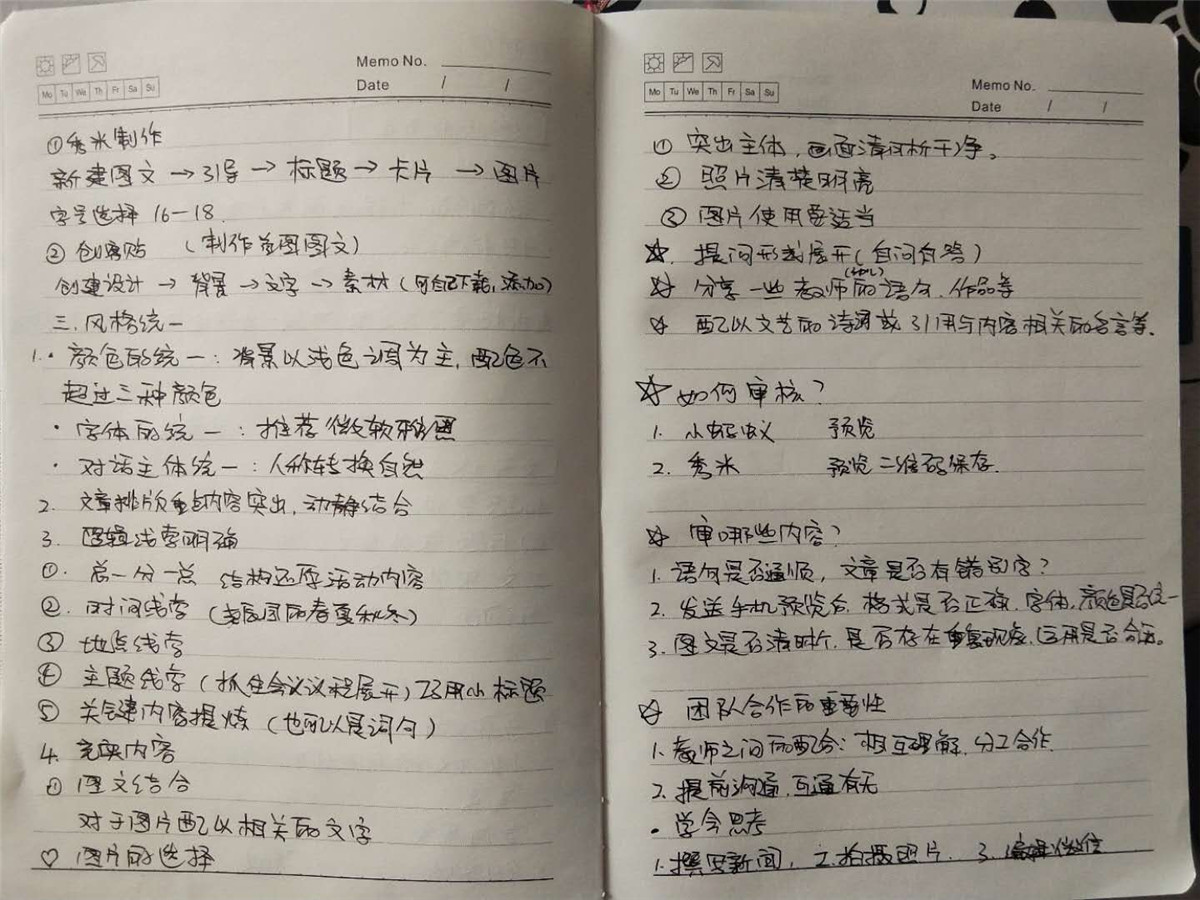 Memo No.
Date / /
Mo Tu We Th Fr Sa Su
①秀米制作
新建图文→引导→标题→卡片→图片
字号选择 16—18.
②创客贴 (制作长图图文)
创建设计→背景→文字→素材(可自己下载,添加)
三.风格统一
1.·颜色的统一:背景以浅色调为主,配色不
超过三种颜色
·字体的统一:推荐微软雅黑
·对话主体统一:人称转换自然
2. 文章排版重点内容突出,动静结合
3. 逻辑线索明确
①. 总一分一点 结构还原活动内容
②. 时间线索(春夏秋冬)
③ 地点线索
④ 主题线索(抓住会议议程展开)巧用小标题
⑤ 关键内容提炼(也可以是词句)
4. 充实内容
① 图文结合
对于图片配以相关的文字
♡ 图片的选择
Memo No.
Date / /
Mo Tu We Th Fr Sa Su
① 突出主体,画面清晰干净。
② 照片清楚明亮
③ 图片使用要适当
☆. 提问形式展开(自问自答)
☆ 分享一些教师(幼儿)的语句.作品等
☆ 配以文艺的诗词或引用与内容相关的名言等.
☆ 如何审核?
1. 小蚂蚁 预览
2. 秀米 预览二维码保存.
☆ 审哪些内容?
1. 语句是否通顺,文章是否有错别字?
2. 发送手机预览后,格式是否正确.字体,颜色是否统一
3. 图文是否清晰,是否存在重复现象,运用是否合适。
☆ 团队合作的重要性
1. 教师之间的配合:相互理解,分工合作.
2. 提前沟通,互通有无
·学会思考
1.撰写新闻, 2.拍摄照片. 3.编辑微信